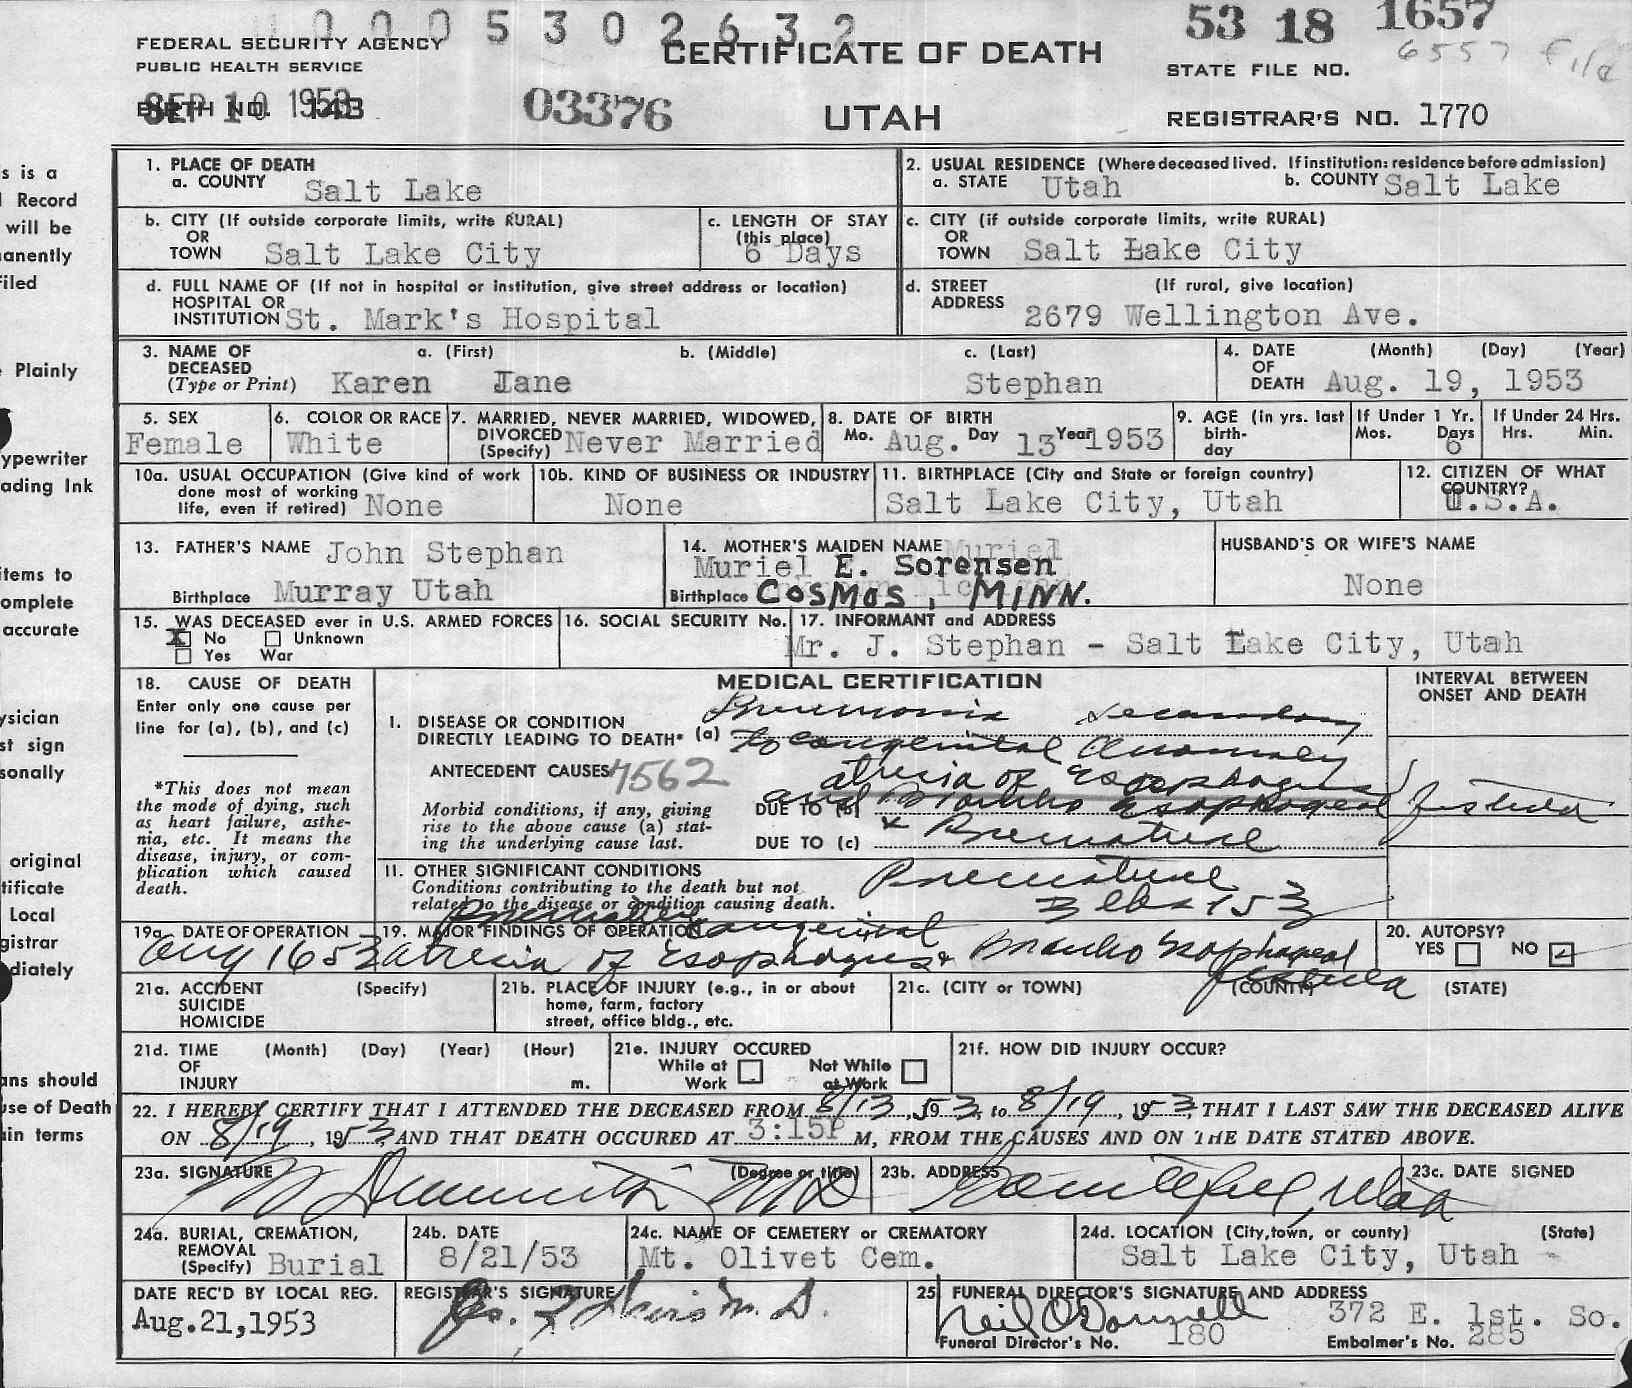 0005302632
53 18 1657
6557 File
FEDERAL SECURITY AGENCY
PUBLIC HEALTH SERVICE
CERTIFICATE OF DEATH
STATE FILE NO.
BIRTH NO. 143
SEP 10 1953
03376
UTAH
REGISTRAR'S NO. 1770
s is a
Record
will be
anently
filed
Plainly
ypewriter
ading Ink
items to
omplete
accurate
ysician
st sign
sonally
original
tificate
Local
gistrar
diately
ans should
use of Death
ain terms
1. PLACE OF DEATH
a. COUNTY Salt Lake
2. USUAL RESIDENCE (Where deceased lived. If institution: residence before admission)
a. STATE Utah b. COUNTY Salt Lake
b. CITY (If outside corporate limits, write RURAL)
OR
TOWN Salt Lake City
c. LENGTH OF STAY
(this place)
6 Days
c. CITY (if outside corporate limits, write RURAL)
OR
TOWN Salt Lake City
d. FULL NAME OF (If not in hospital or institution, give street address or location)
HOSPITAL OR
INSTITUTION St. Mark's Hospital
d. STREET (If rural, give location)
ADDRESS 2679 Wellington Ave.
3. NAME OF a. (First) b. (Middle) c. (Last)
DECEASED
(Type or Print) Karen Jane Stephan
4. DATE (Month) (Day) (Year)
OF
DEATH Aug. 19, 1953
5. SEX
Female
6. COLOR OR RACE
White
7. MARRIED, NEVER MARRIED, WIDOWED,
DIVORCED
(Specify) Never Married
8. DATE OF BIRTH
Mo. Aug. Day 13 Year 1953
9. AGE (in yrs. last
birth-
day
If Under 1 Yr.
Mos. Days
6
If Under 24 Hrs.
Hrs. Min.
10a. USUAL OCCUPATION (Give kind of work
done most of working
life, even if retired) None
10b. KIND OF BUSINESS OR INDUSTRY
None
11. BIRTHPLACE (City and State or foreign country)
Salt Lake City, Utah
12. CITIZEN OF WHAT
COUNTRY?
U.S.A.
13. FATHER'S NAME John Stephan
Birthplace Murray Utah
14. MOTHER'S MAIDEN NAME Muriel
Muriel E. Sorensen
Birthplace COSMOS, MINN.
HUSBAND'S OR WIFE'S NAME
None
15. WAS DECEASED ever in U.S. ARMED FORCES
X No Unknown
Yes War
16. SOCIAL SECURITY No.
17. INFORMANT and ADDRESS
Mr. J. Stephan - Salt Lake City, Utah
18. CAUSE OF DEATH
Enter only one cause per
line for (a), (b), and (c)
*This does not mean
the mode of dying, such
as heart failure, asthe-
nia, etc. It means the
disease, injury, or com-
plication which caused
death.
MEDICAL CERTIFICATION
INTERVAL BETWEEN
ONSET AND DEATH
I. DISEASE OR CONDITION
DIRECTLY LEADING TO DEATH* (a) Pneumonia secondary
to congenital anomaly
ANTECEDENT CAUSES 7562 atresia of Esophagus
Morbid conditions, if any, giving
rise to the above cause (a) stat-
ing the underlying cause last.
DUE TO (b) and Broncho esophageal fistula
DUE TO (c) & Premature
11. OTHER SIGNIFICANT CONDITIONS
Conditions contributing to the death but not
related to the disease or condition causing death.
Premature
3 lbs
19a. DATE OF OPERATION
Aug 16 53
19. MAJOR FINDINGS OF OPERATION congenital
atresia of Esophagus & Broncho Esophageal
fistula
20. AUTOPSY?
YES NO
21a. ACCIDENT (Specify)
SUICIDE
HOMICIDE
21b. PLACE OF INJURY (e.g., in or about
home, farm, factory
street, office bldg., etc.
21c. (CITY or TOWN) (COUNTY) (STATE)
21d. TIME (Month) (Day) (Year) (Hour)
OF
INJURY m.
21e. INJURY OCCURED
While at Not While
Work at Work
21f. HOW DID INJURY OCCUR?
22. I HEREBY CERTIFY THAT I ATTENDED THE DECEASED FROM 8/13, 1953, to 8/19, 1953, THAT I LAST SAW THE DECEASED ALIVE
ON 8/19, 1953, AND THAT DEATH OCCURED AT 3:15P M, FROM THE CAUSES AND ON THE DATE STATED ABOVE.
23a. SIGNATURE (Degree or title)
MD
23b. ADDRESS
Utah
23c. DATE SIGNED
24a. BURIAL, CREMATION,
REMOVAL
(Specify) Burial
24b. DATE
8/21/53
24c. NAME OF CEMETERY or CREMATORY
Mt. Olivet Cem.
24d. LOCATION (City, town, or county) (State)
Salt Lake City, Utah -
DATE REC'D BY LOCAL REG.
Aug. 21, 1953
REGISTRAR'S SIGNATURE
M. D.
25. FUNERAL DIRECTOR'S SIGNATURE AND ADDRESS
Neil O'Donnell 372 E. 1st. So.
Funeral Director's No. 180 Embalmer's No. 285